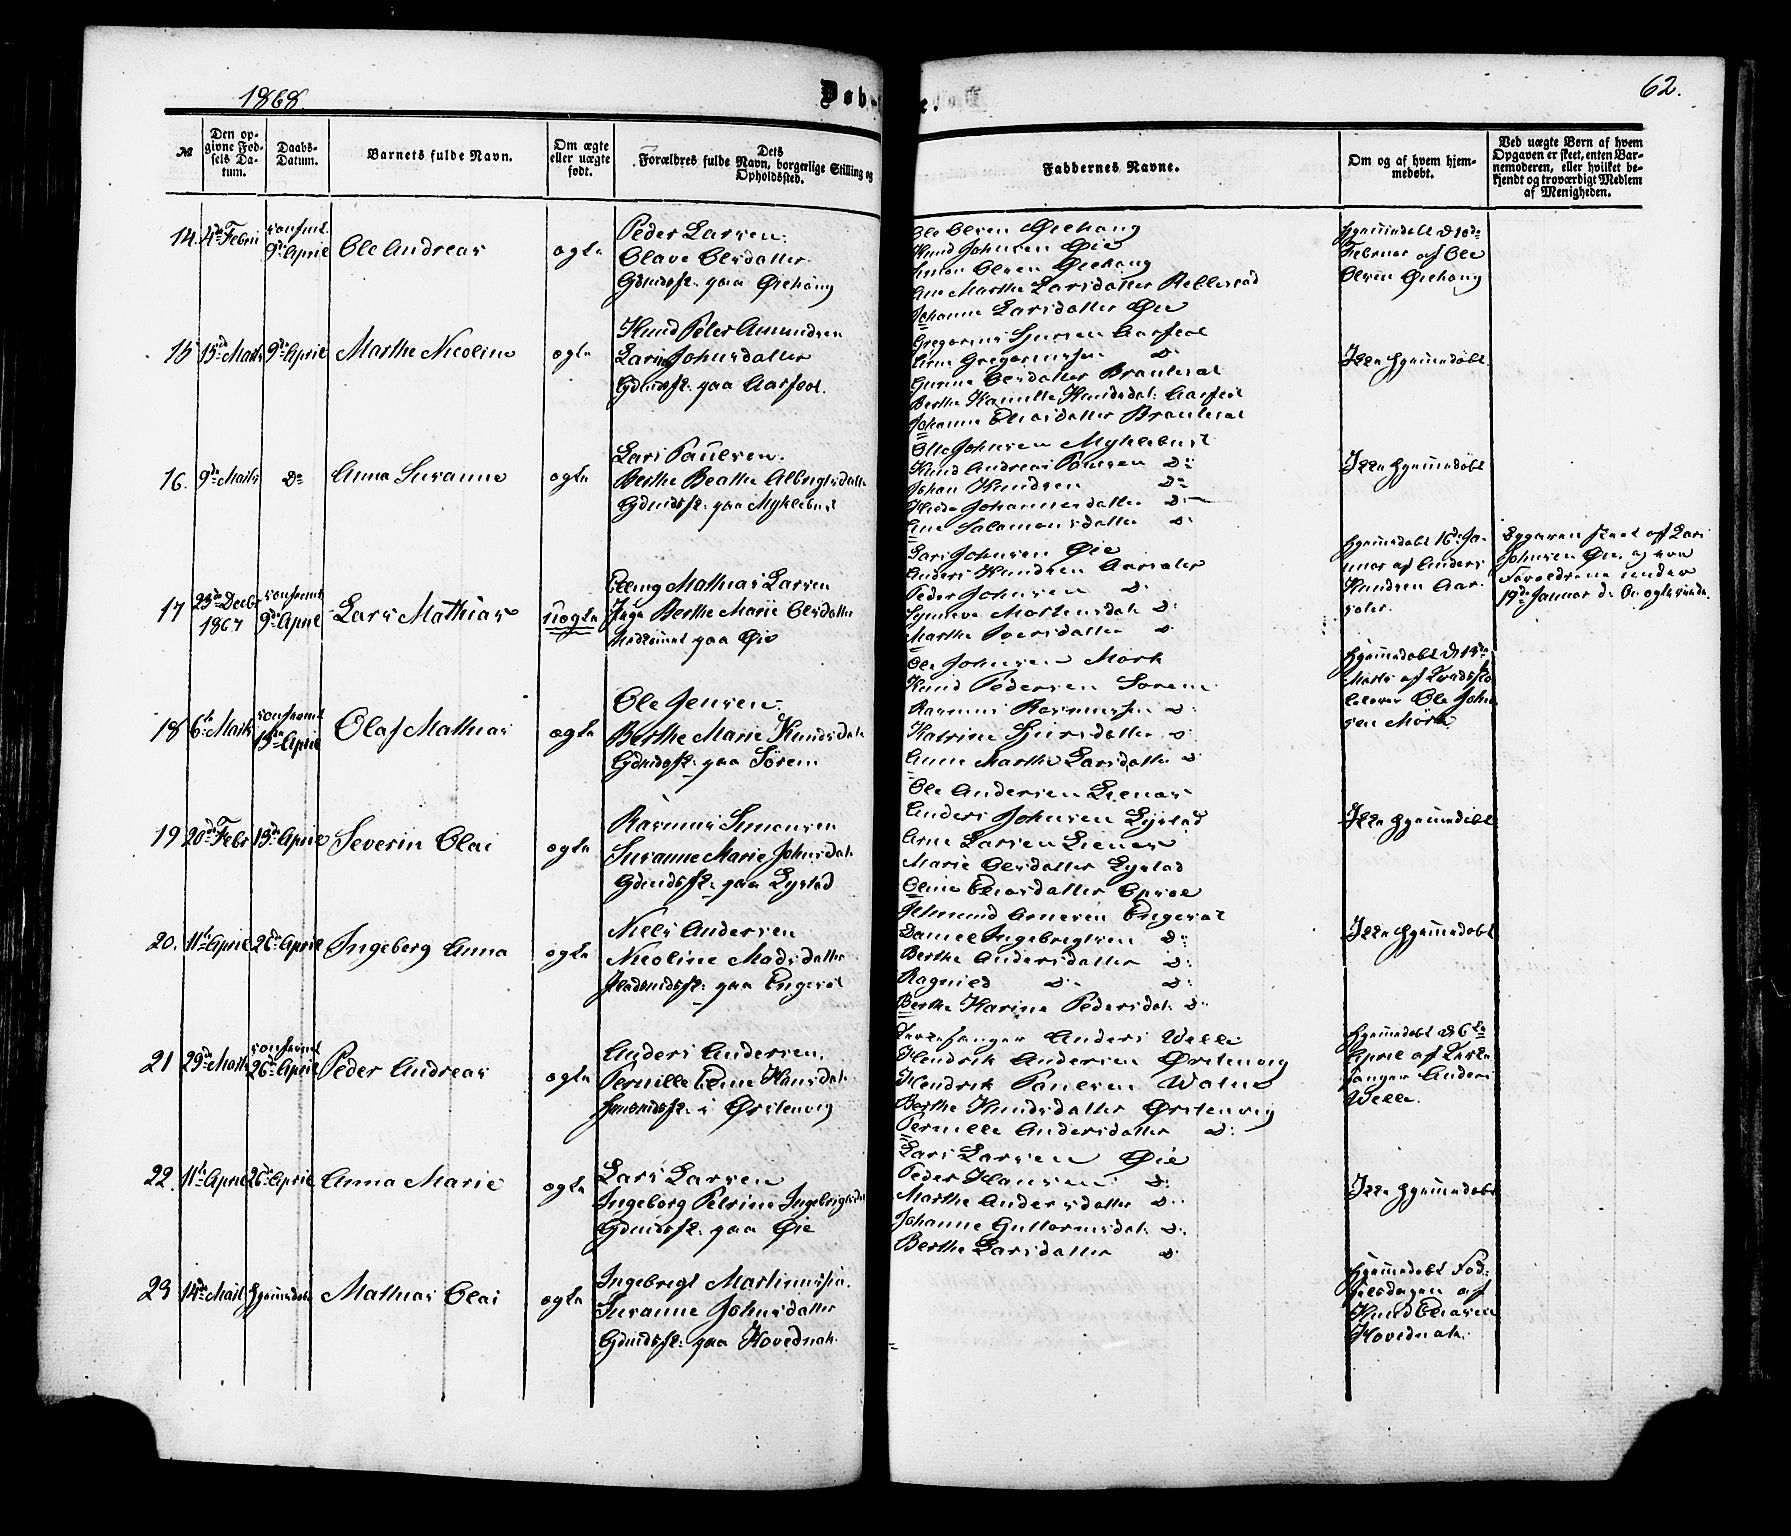 1868
Døb-
e.
62.
№
Den op-
givne Fød-
sels Da-
tum.
Daabs-
Datum.
Barnets fulde Navn.
Om ægte
eller uægte
født.
Dets
Forældres fulde Navn, borgerlige Stilling og
Opholdssted.
Faddernes Navne.
Om og af hvem hjem-
medøbt.
Ved uægte Børn af hvem
Opgaven er skeet, enten Bar-
nemoderen, eller hvilket be-
kjendt og troværdigt Medlem
af Menigheden.
14. 4de Febr
confirmt
9de April
Ole Andreas
ægte
Peder Larsen.
Olave Olsdatter
Gdmdsf. paa Øiehaug
Ole Olsen Øiehaug
Knud Johnsen Øie
Simon Olsen Øiehaug
Ane Marthe Larsdatter Rellestad
Johanne Larsdatter Øie
Hjemmedøbt d 10de
Februar af Ole
Olsen Øiehaug
15 15de Marts 9de April
Marthe Nicoline
ægte
Knud Peter Amundsen
Larine Johnsdatter
Gdmdsf. paa Aarseth
Gregorius Sjursen Aarseth
Arne Gregoriussen D:
Gurine Olsdatter Brautesæt
Berthe Kanutte Knudsdat: Aarseth
Johanne Eliasdatter Brautesæt
Ikke hjemmedøbt
16. 9de Marts
Do
Anna Susanne
ægte
Lars Paulsen.
Berthe Beathe Albrigtsdatter
Gdmdsf. paa Myklebust
Ole Johnsen Myklebust
Knud Andreas Paulsen D:
Johan Knudsen D:
Johannesdatter D:
Ane Salamonsdatter D:
Ikke hjemmedøbt
17 23de Decbr
1867
confirmt
9de April
Lars Mathias
uægte
Elling Mathias Larsen
Pige Berthe Marie Olsdatter
paa Øie
Lars Johnsen Øie
Anders Knudsen Aarsæter
Peder Johnsen D:
Synneve Mortensdat: D:
Marthe Iversdatter D:
Hjemmedøbt 16de Ja-
nuar af Anders
Knudsen Aar-
sæter.
Opgaven skeet af Lars
Johnsen Øie og av
Forældrene under
19de Januar
18 6te Marts
confirmt
13de April
Olaf Mathias
ægte
Ole Jensen.
Berthe Marie Knudsdat.
Gdmdsf. paa Sørem
Ole Johnsen Mørk
Knud Pedersen Sørem
Rasmus Rasmussen D:
Katrine Sjursdatter D:
Anne Marthe Larsdatter D:
Hjemmedøbt d 13de
Marts af Kredssko-
lelærer Ole John-
sen Mørk
19 20de Febr 13de April
Severin Olai
ægte
Rasmus Simonsen
Susanne Marie Johnsdat.
Gdmdsf. paa Lystad
Ole Andersen Lienæs
Anders Johnsen Lystad
Arne Larsen Lienæs
Marie Olsdatter Lystad
Oline Eliasdatter
Ikke hjemmedøbt
20. 11te April 26de April
Ingeborg Anna
ægte
Niels Andersen
Nicoline Madsdatter
paa Engeset
Jetmund Arnesen Engeset
Daniel Ingebrigtsen D:
Berthe Andersdatter D:
Ragnild D: D:
Berthe Karine Pedersdat: D:
Ikke hjemmedøbt
21 29de Marts
confirmt
26de April
Peder Andreas
ægte
Anders Andersen.
Pernille Eline Hansdat.
i Ørstenvig
Kirkesanger Anders Welle
Hendrik Andersen Ørstenvig
Hendrik Paulsen Watne
Berthe Knudsdatter Ørstenvig
Pernille Andersdatter D:
Hjemmedøbt d 6te
April af Kirke-
sanger Anders
Welle.
22. 11te April 26de April
Anna Marie
ægte
Lars Larsen
Ingeborg Petrine Ingebrigtsdat
Gdmdsf. paa Øie
Lars Larsen Øie
Peder Hansen D:
Marthe Andersdatter D:
Johanne Guttormsdat: D:
Berthe Larsdatter D:
Ikke hjemmedøbt
23 14de Marts Hjemmedøbt
Mathias Olai
ægte
Ingebrigt Martinussen.
Susanne Johnsdatter
Gdmdsf. paa Hovednak.
Hjemmedøbt Fød-
selsdagen af
Knud Eliasen
Hovednak.